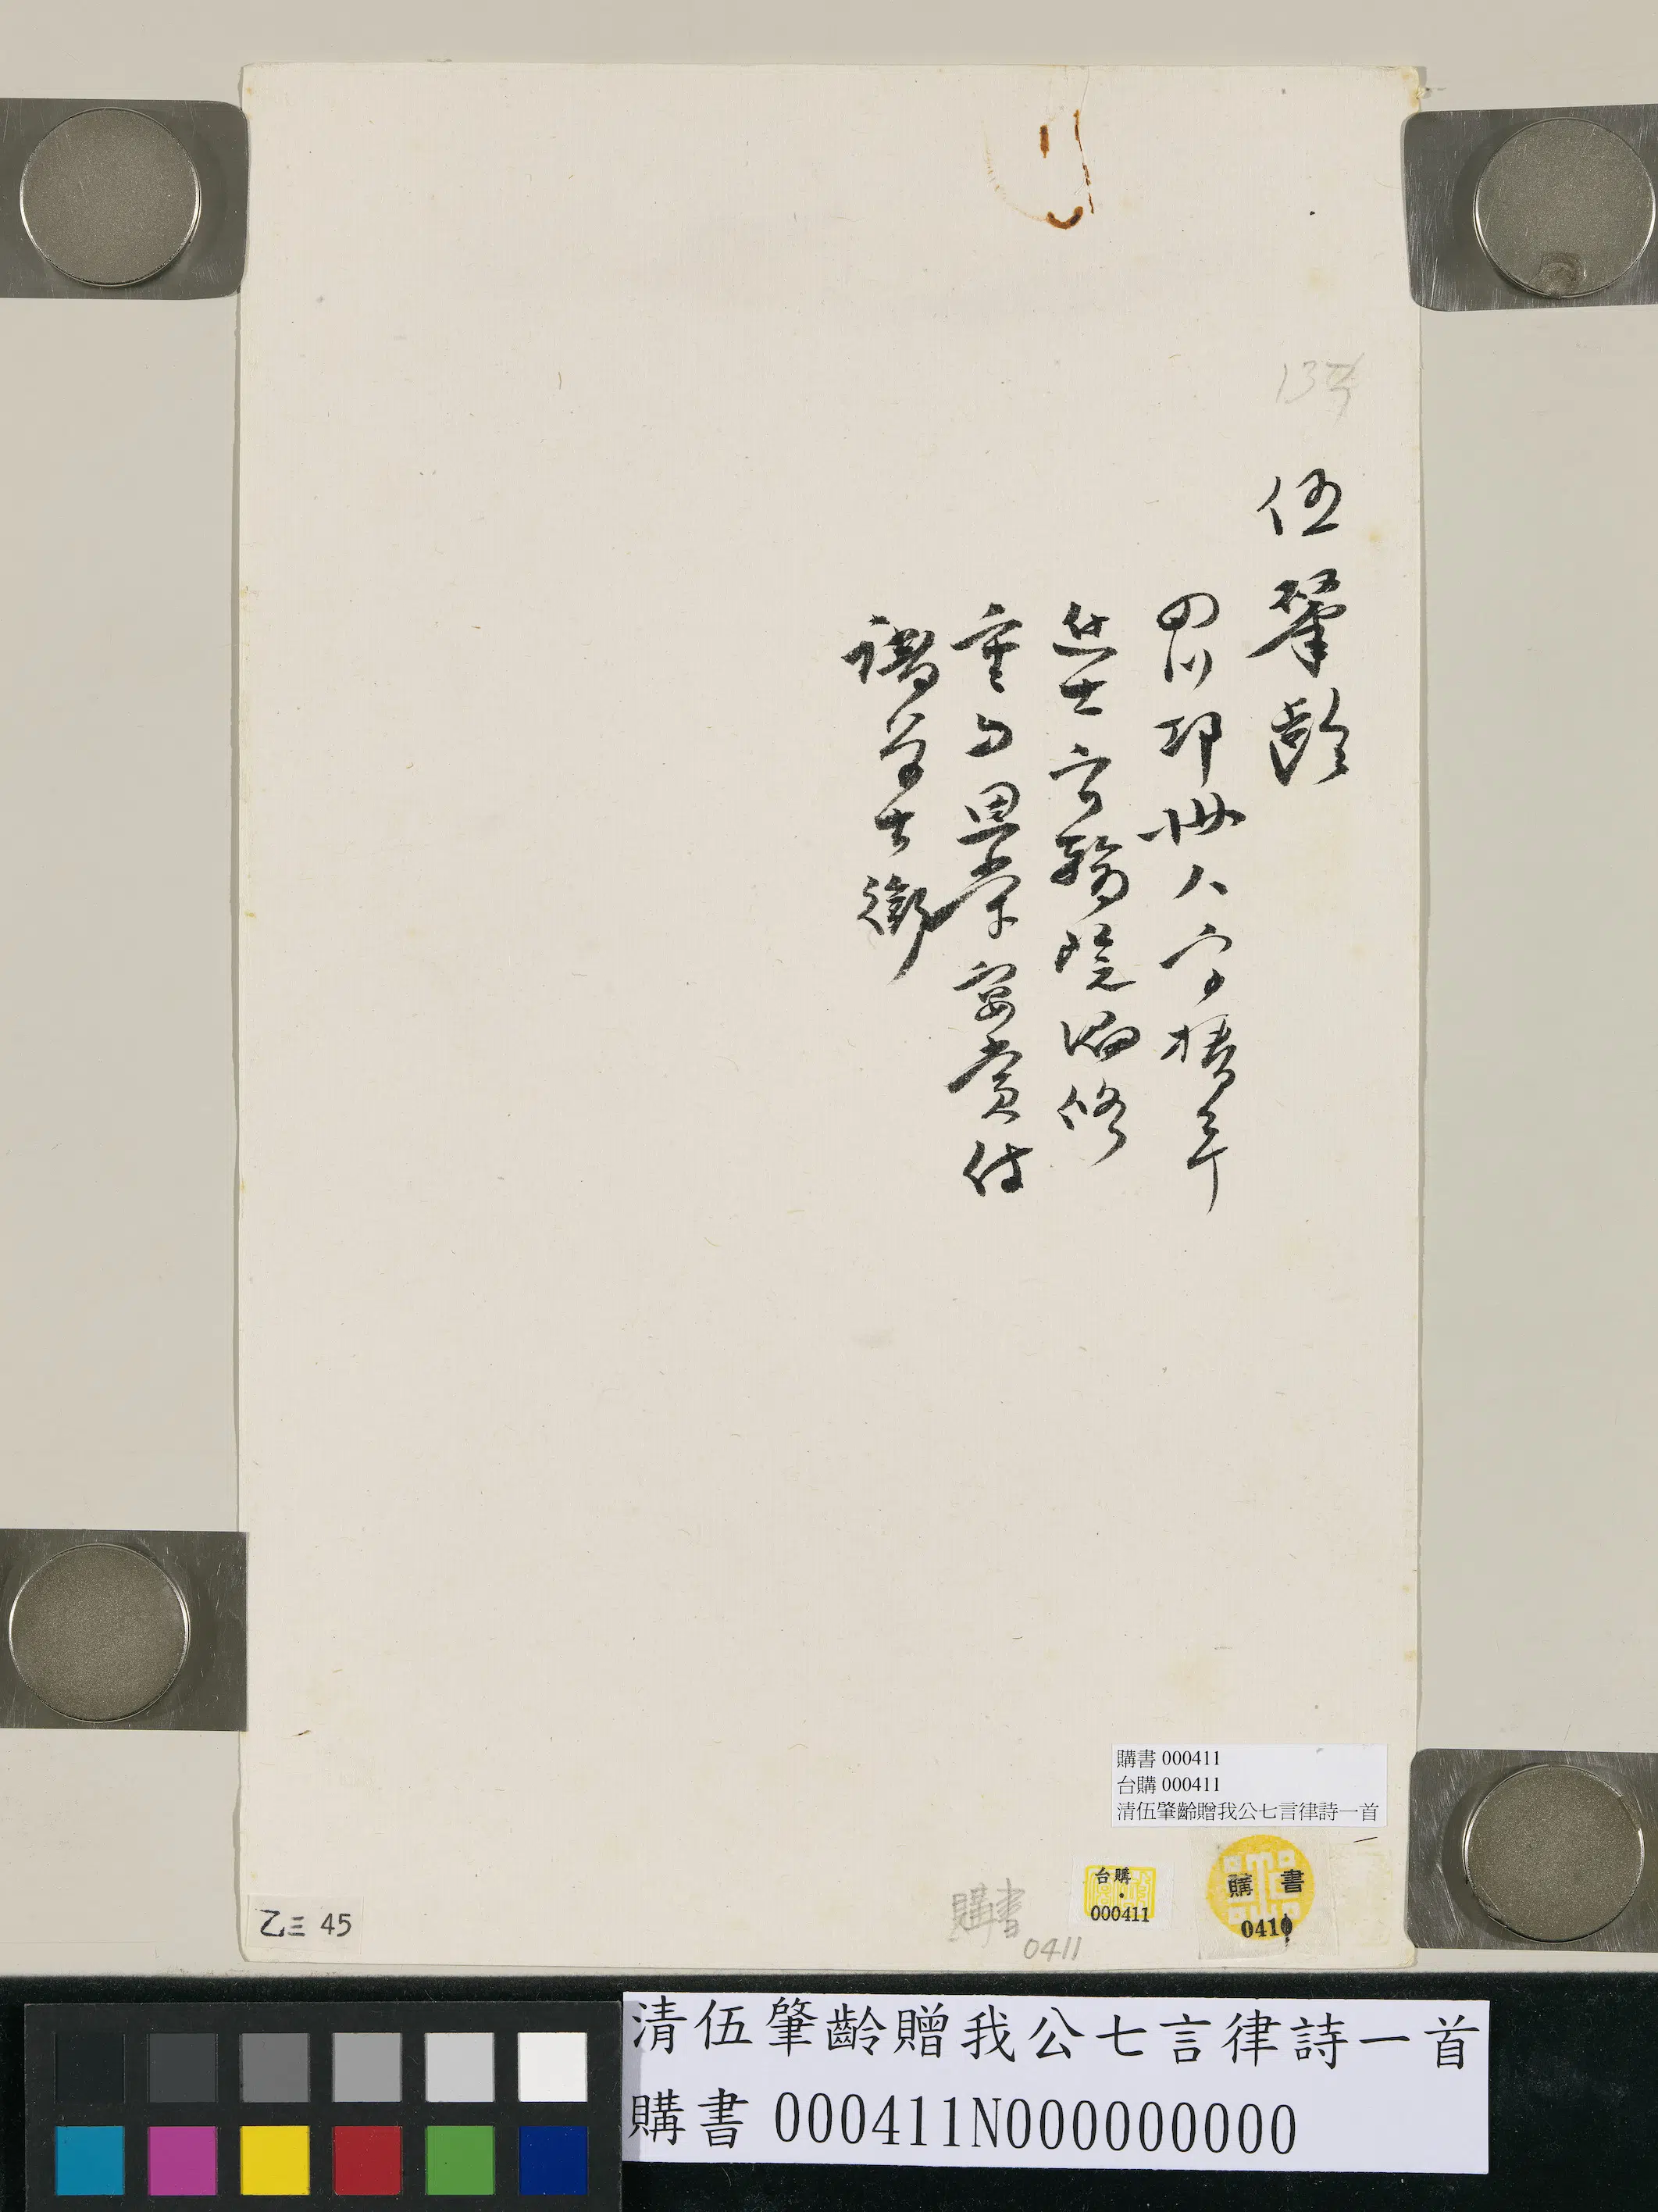 伍肇齡
四川邛州人字椿年
進士官翰院編修
重與恩榮宴賞侍
講學士銜
購書 000411
台購 000411
清伍肇齡贈我公七言律詩一首
台購
000411
購書
0410
購書
0411
乙三 45
清伍肇齡贈我公七言律詩一首
購書 000411N000000000